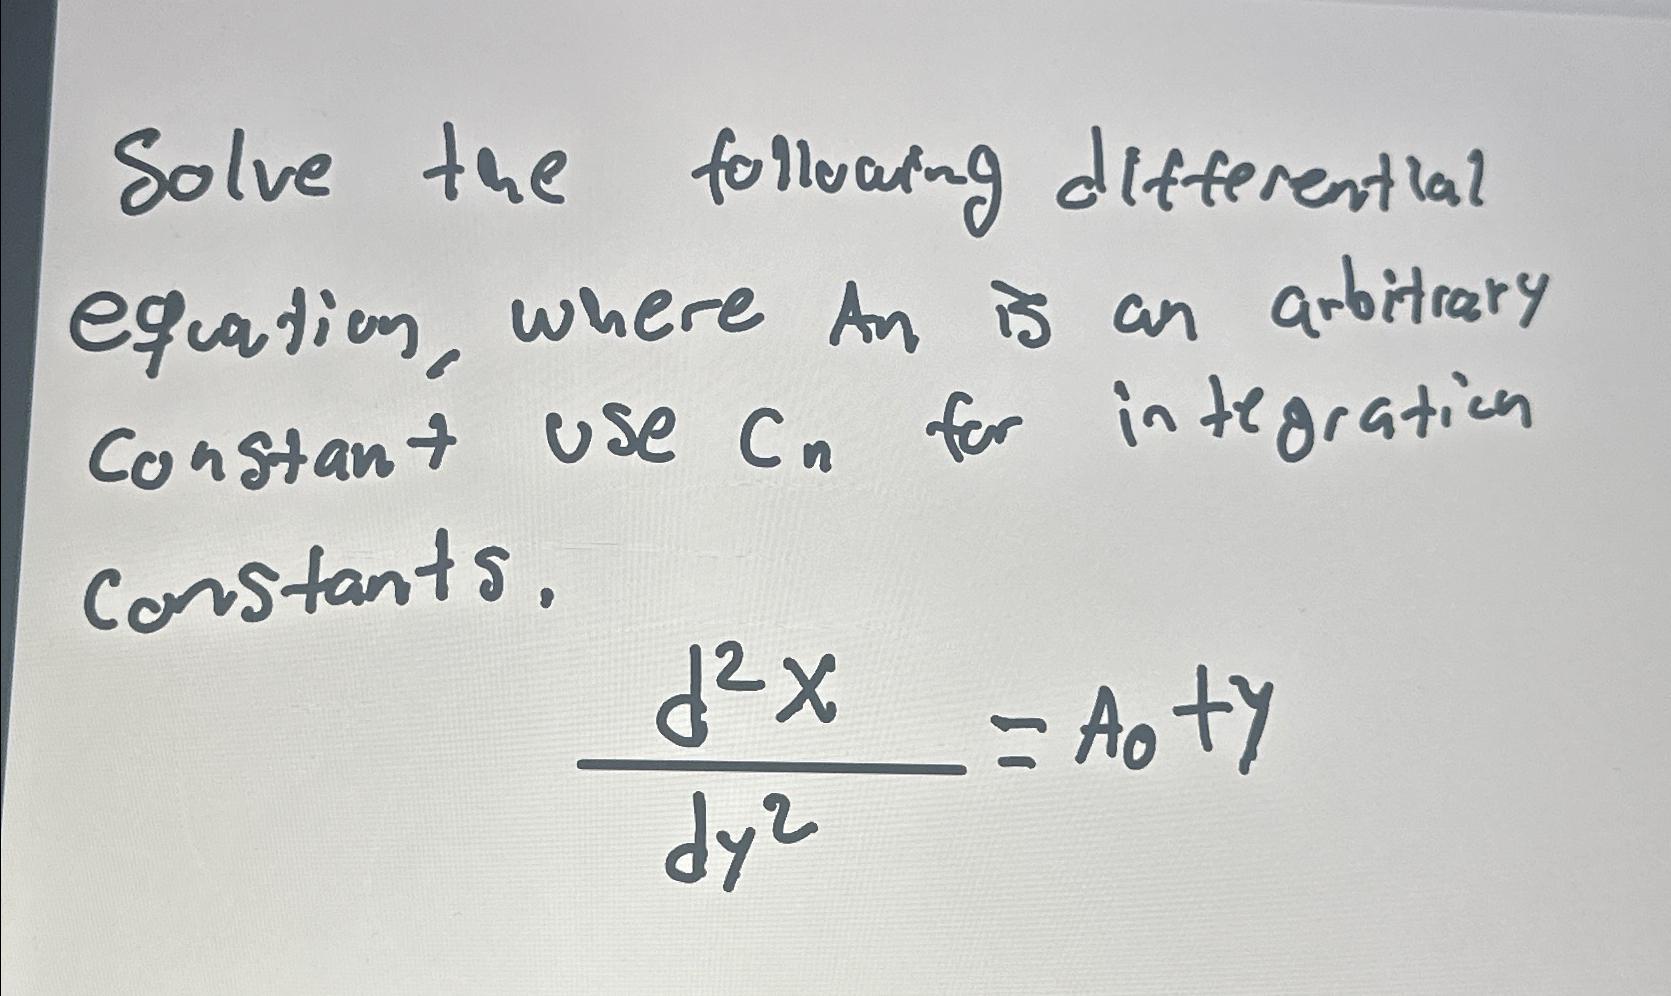 Solve the following differential
equation, where An is an arbitrary
constant use Cn for integration
constants.
d²x
= A₀ + y
dy²